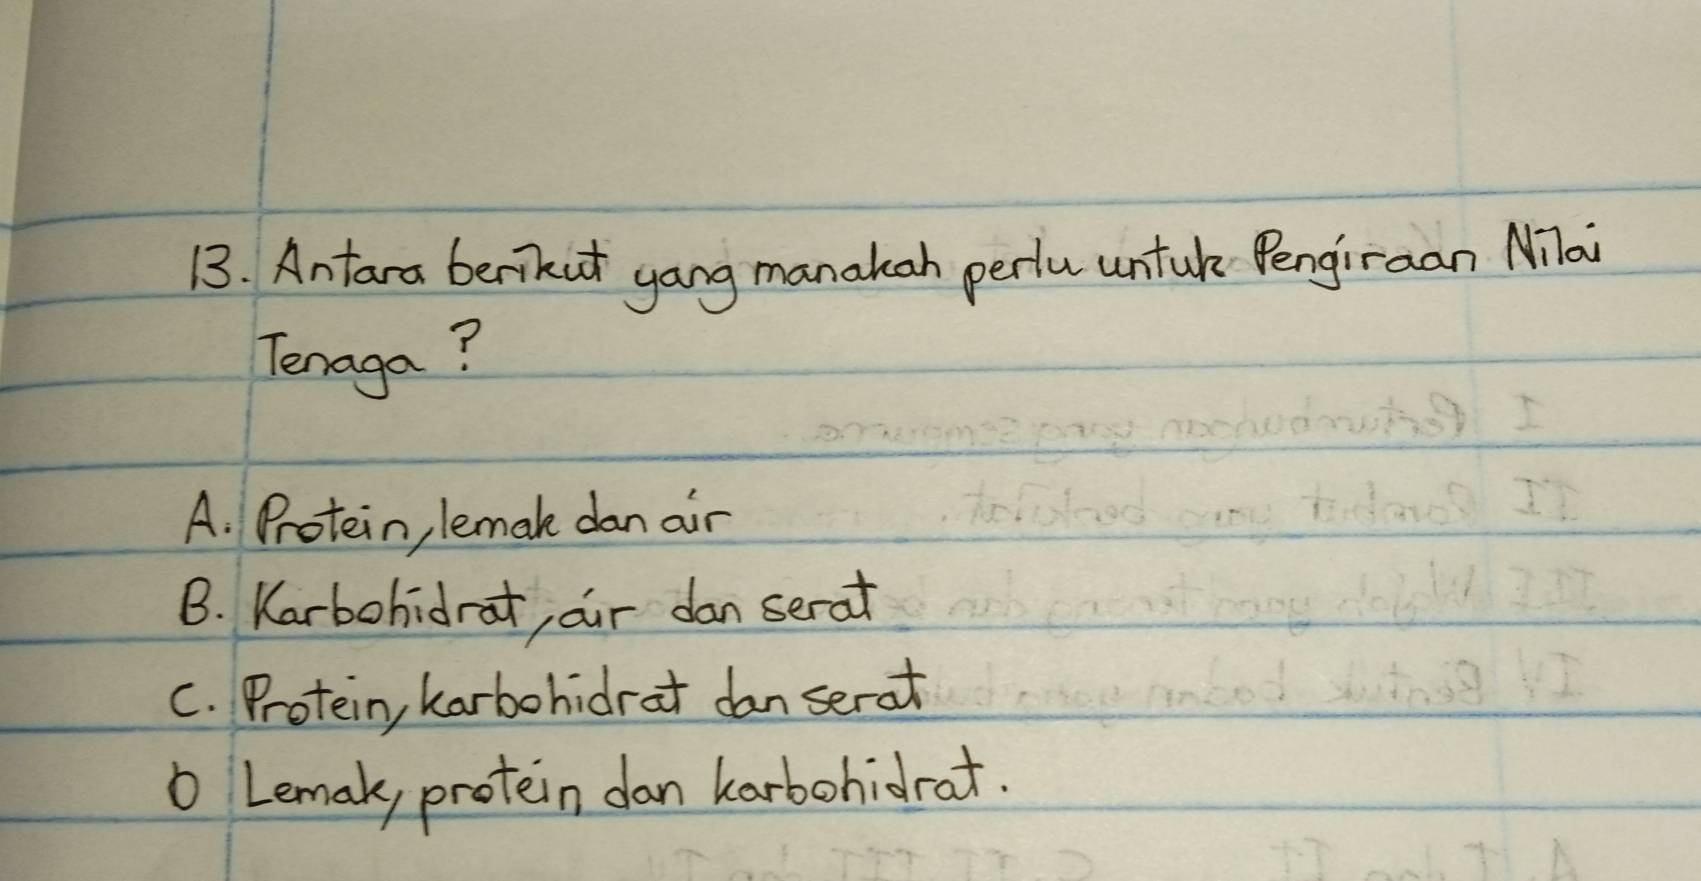 13. Antara berikut yang manakah perlu untuk Pengiraan Nilai
Tenaga?
A. Protein, lemak dan air
B. Karbohidrat, air dan serat
C. Protein, karbohidrat dan serat
D Lemak, protein dan karbohidrat.